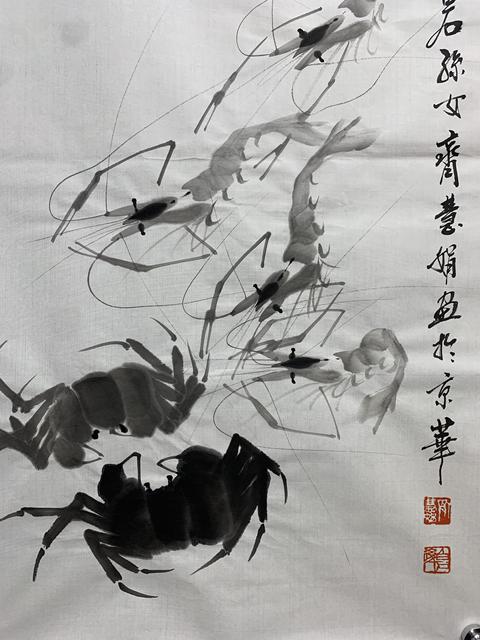 石孙女齊慧娟画於京華